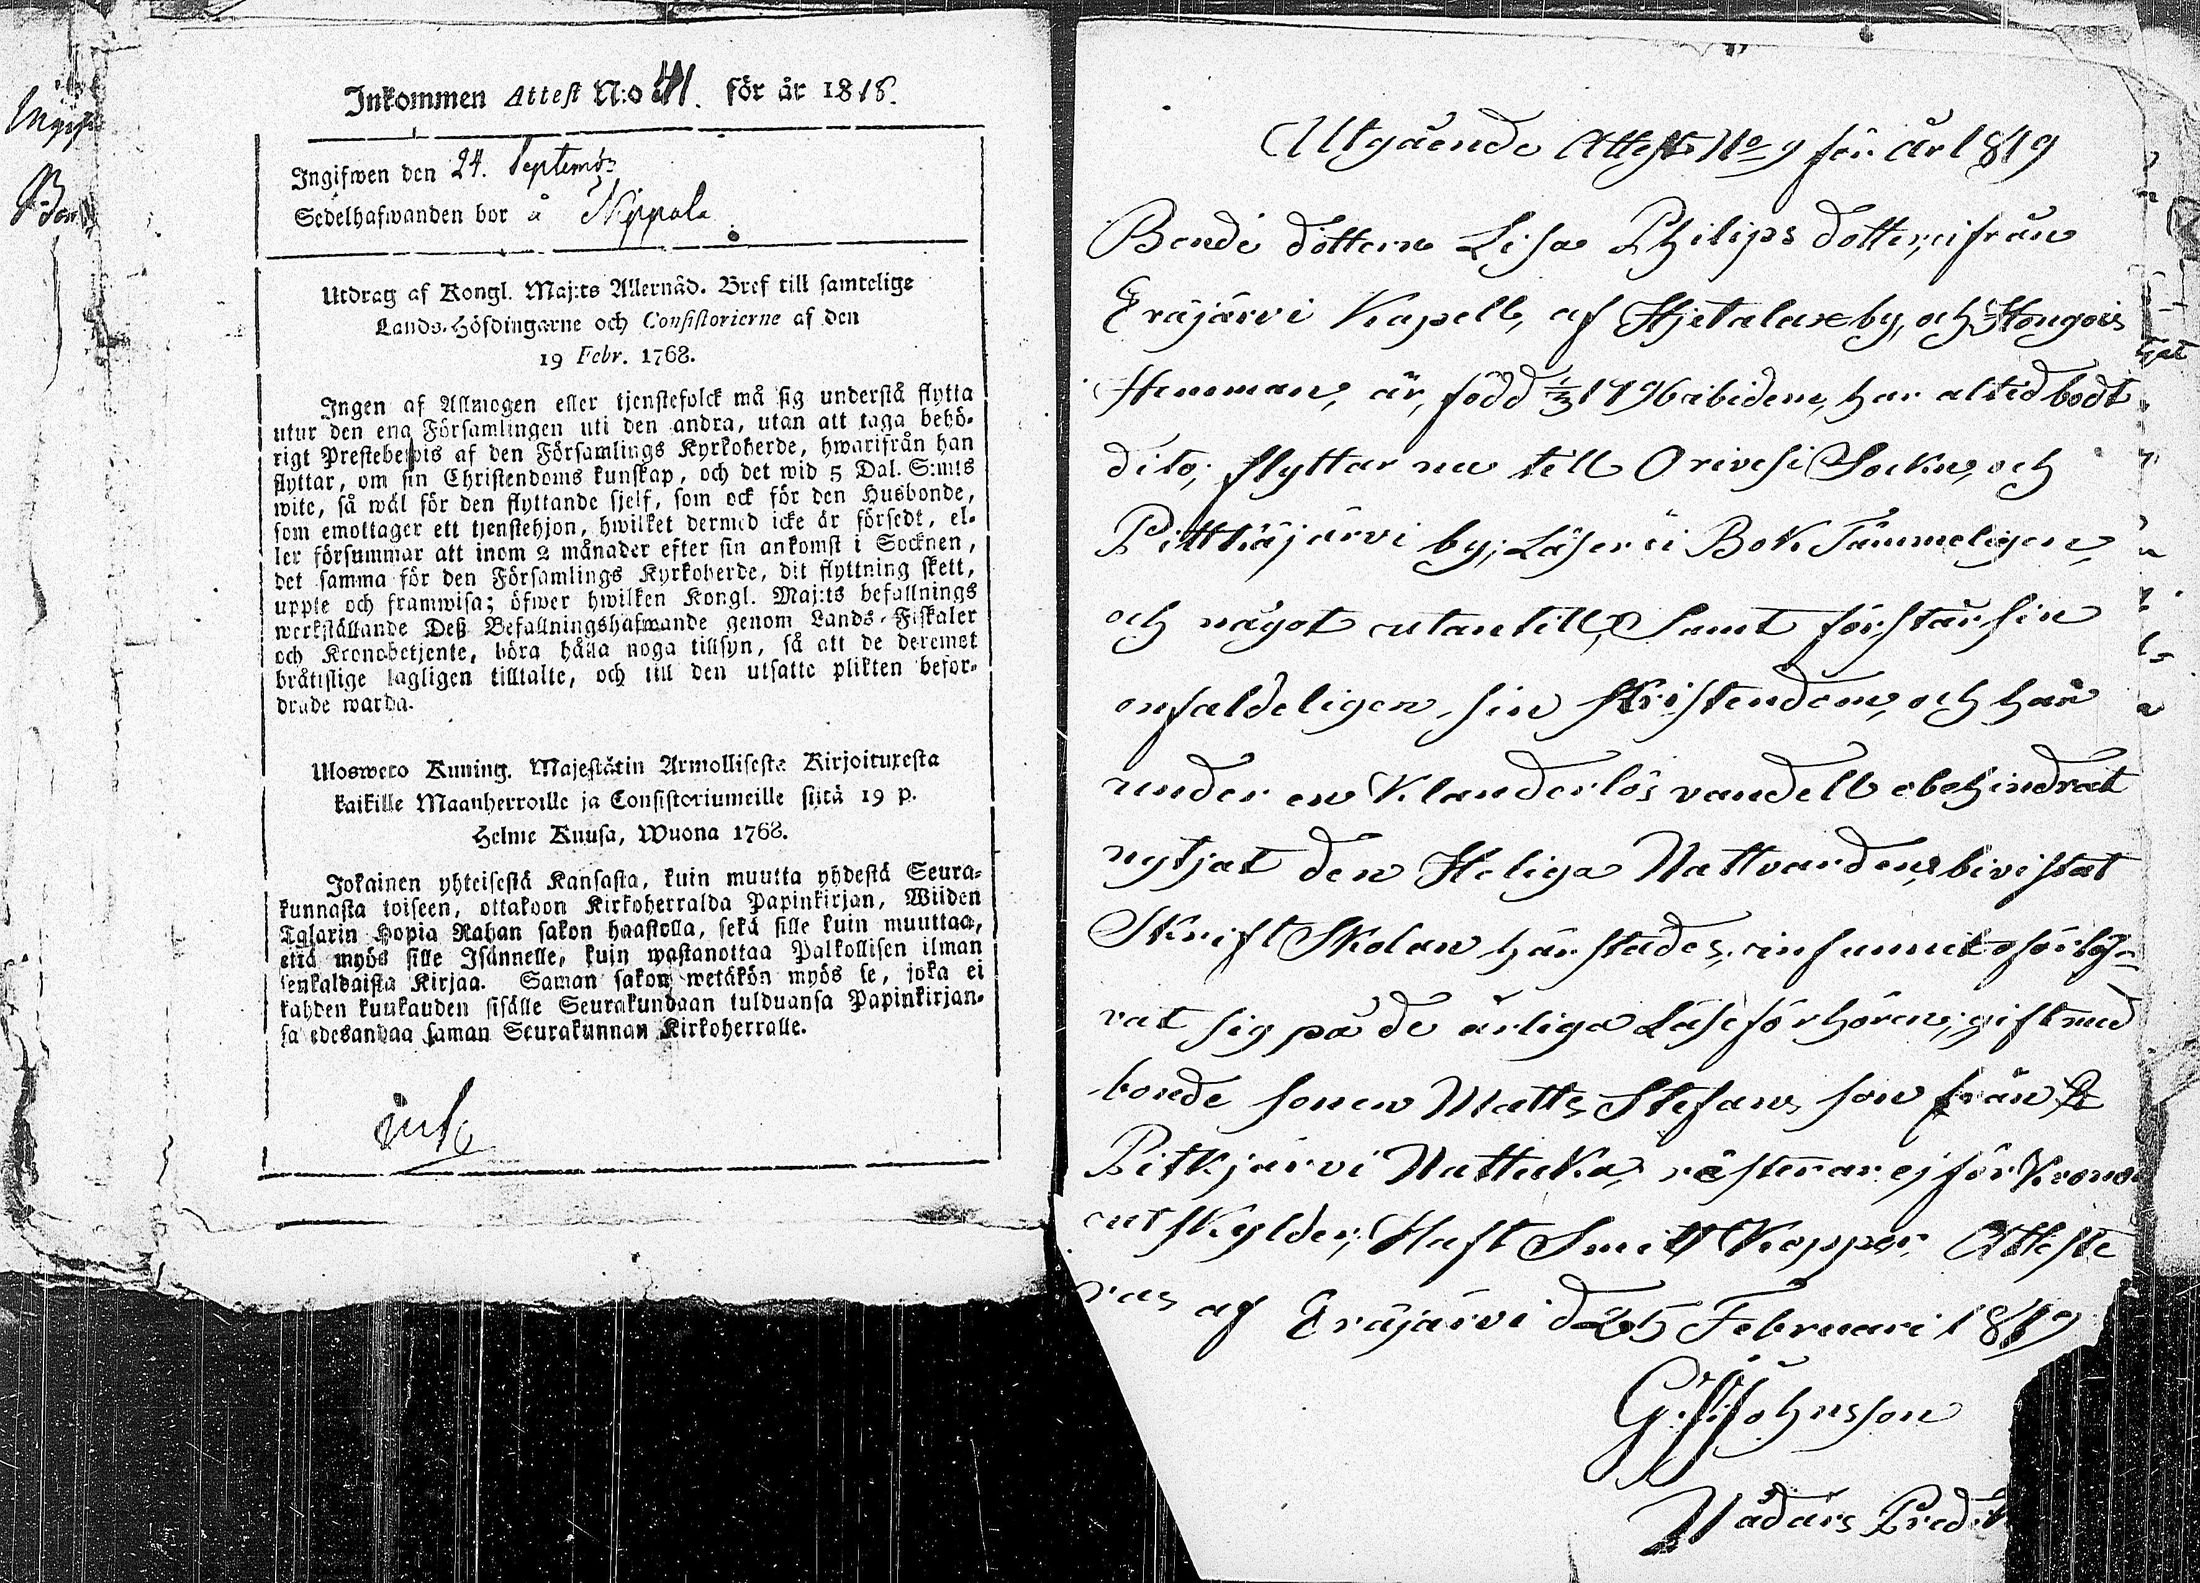 Inkommen Attest N:o 41. för år 1818.
Ingifwen den 24. Septemb:
Sedelhafwanden bor å Nippala
Utdrag af Kongl. Maj:ts Allernåd. Bref till samtelige
Lands-Höfdingarne och Consistorierne af den
19 Febr. 1768.
Ingen af Allmogen eller tjenstefolck må sig understå flytta
utur den ena Församlingen uti den andra, utan att taga behö-
rigt Prestebewis af den Församlings Kyrkoherde, hwarifrån han
flyttar, om sin Christendoms kunskap, och det wid 5 Dal. S:mts
wite, så wäl för den flyttande sjelf, som ock för den Husbonde,
som emottager ett tjenstehjon, hwilket dermed icke är försedt, el-
ler försummar att inom 2 månader efter sin ankomst i Socknen,
det samma för den Församlings Kyrkoherde, dit flyttning skett,
uppte och framwisa; öfwer hwilken Kongl. Maj:ts befallnings
werkställande Deß Befallningshafwande genom Lands-Fiskaler
och Kronobetjente, böra hålla noga tillsyn, så att de deremot
bråttslige lagligen tilltalte, och till den utsatte plikten befor-
drade warda.
Ulosweto Kuning. Majestätin Armollisesta Kirjoituxesta
kaikille Maanherroille ja Consistoriumeille siitä 19 p.
Helme Kuusa, Wuona 1768.
Jokainen yhteisestä Kansasta, kuin muutta yhdestä Seura-
kunnasta toiseen, ottakoon Kirkoherralda Papinkirjan, Wiiden
Talarin Hopia Rahan sakon haastolla, sekä sille kuin muuttaa,
että myös sille Isännelle, kuin wastanottaa Palkollisen ilman
senkaldaista Kirjaa. Saman sakon wetäkön myös se, joka ei
kahden kuukauden sisälle Seurakundaan tulduansa Papinkirjan-
sa edesandaa saman Seurakunnan Kirkoherralle.
Utgående Attest No 9 för år 1819
Bonde dottern Lisa Philips dotter, ifrån
Eräjärvi Kapell, af Hjetalax by, och Hongois
Hemman, är, född 1796 ibidem, har altid bodt
dito; flyttar nu till Orivesi Sockn, och
Pittkäjärvi by; Läser i Bok Tämmeligen,
och något utantill, Samt förstår sin
enfaldeligen, sin Kristendom, och har
under en Klanderlös vandell obehindrat
nytjat den Heliga Nattvarden, bivistat
Skrift Skolan härstädes, infunnit o förlof-
vat sig på de årliga Läseförhören; gift med
bonde sonen Matts Stefans son från
Pitkjärvi Nattuka, rästerar ej för Krono
utskylder; Haft Smitt Koppor, Atteste
ras af Eräjärvi d 25 Februari 1819
G. Johnsson
Nådårs Predik